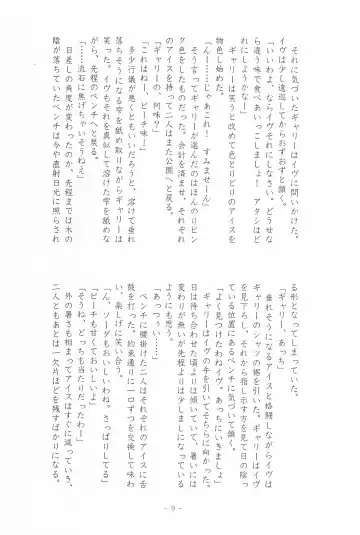 それに気づいたギャリーはイヴに問いかけた。
イヴは少し逡巡してからおずおずと頷く。
「いいわよ、ならイヴそれにしなさい。どうせな
ら違う味で食べあいっこしましょ！　アタシはど
れにしようかなー」
　ギャリーは笑うと改めて色とりどりのアイスを
物色し始めた。
「んー……じゃあこれ！　すみませーん」
　そう言ってギャリーが選んだのはほんのりピン
グ色をしたものだった。会計を済ませ、それぞれ
のアイスを持って二人はまた公園へと戻る。
「ギャリーの、何味？」
「これはねー、ピーチ味！」
　多少行儀が悪くともいいだろうと、溶けて垂れ
落ちそうになる雫を舐め取りながらギャリーは
笑った。イヴもそれを真似して溶けた雫を舐めな
がら、先程のベンチへと戻る。
「……流石に焦げちゃいそうねえ」
　日差しの角度が変わったのか、先程までは木の
陰が落ちていたベンチは今や直射日光に照らされ
る形となってしまっていた。
「ギャリー、あっち」
　垂れそうになるアイスと格闘しながらイヴは
ギャリーのシャツの裾を引いた。ギャリーはイヴ
を見下ろし、それから指し示す方を見て日の陰っ
ている位置にあるベンチに気づいて頷く。
「よく見つけたわねイヴ。あっちにいきましょ」
　ギャリーはイヴの手を引いてそちらに向かった。
日は待ち合わせた頃よりは傾いていて、暑いには
変わりが無いが先程よりは少しましになっている
ようにも思う。
「あっつぅい……」
　ベンチに腰掛けた二人はそれぞれのアイスに舌
鼓を打った。約束通りに一口ずつを交換して味わ
い、楽しげに笑い合う。
「ピーチも甘くておいしいよ」
「ん、ソーダもおいしいわね。さっぱりしてる」
「そうね、どっちも当たりだったわー」
　外の暑さも相まってアイスはすぐに減っていき、
二人ともあとは一欠片ほどを残すばかりになる。
- 9 -